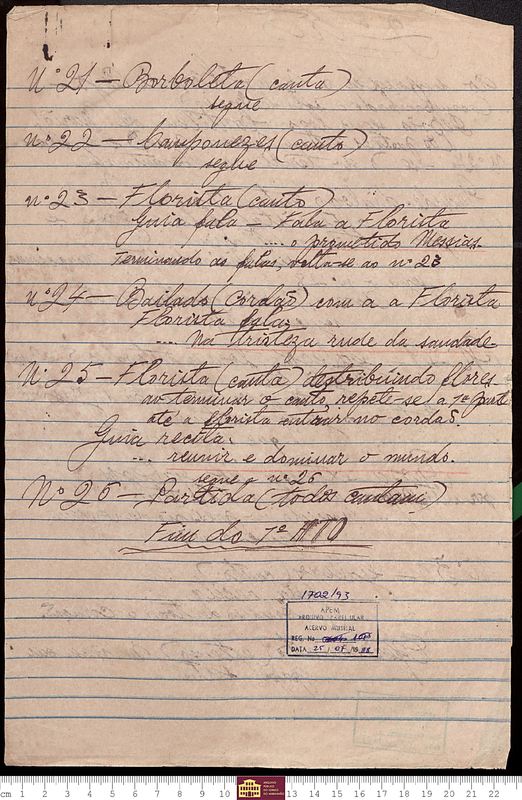 Nº 21 — Borboleta (canta)
segue
nº 22 — Camponezes (canto)
segue
nº 23 — Florista (canto)
Guia fala — Fala a Florista
.... o prometido Messias.
Terminando as falas, volta-se ao nº 23
nº 24 — Bailado (Cordão) com a a Florista
Florista fala,
.... Na tristeza rude da saudade.
Nº 25 — Florista (canta) destribuindo flores.
ao terminar o canto, repete-se a 1ª parte
até a florista entrar no cordão.
Guia recita.
... reunir e dominar o mundo.
segue o nº 26
Nº 26 — Partida (todos cantam)
Fim do 1º ATO
1702/93
APEM
ARQUIVO
ACERVO MUSICAL
REG. No
DATA 25 / 07 /
cm 1 2 3 4 5 6 7 8 9 10 13 14 15 16 17 18 19 20 21 22